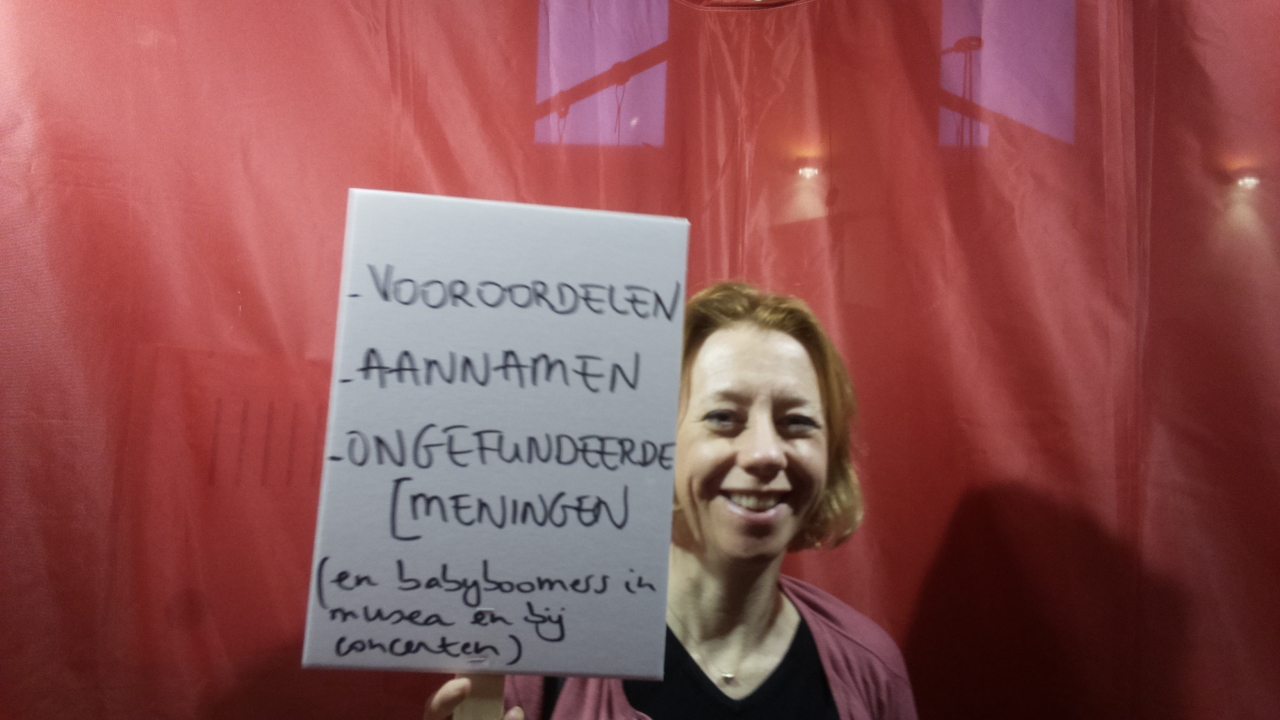 - VOOROORDELEN
- AANNAMEN
- ONGEFUNDEERDE
[MENINGEN
(en babyboomers in
musea en bij
concerten)